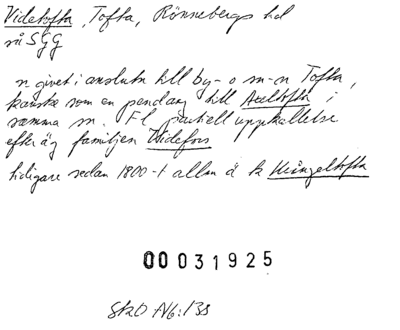 Videtofta, Tofta, Rönnebergs hd
så SGG
n givet i anslutn till by- o sn-n Tofta,
kanske som en pendang till Axeltofta i
samma sn. Fl partiell uppkallelse
efter äg familjen Widefors
tidigare sedan 1800-t allm å k
00031925
SkO A6:133